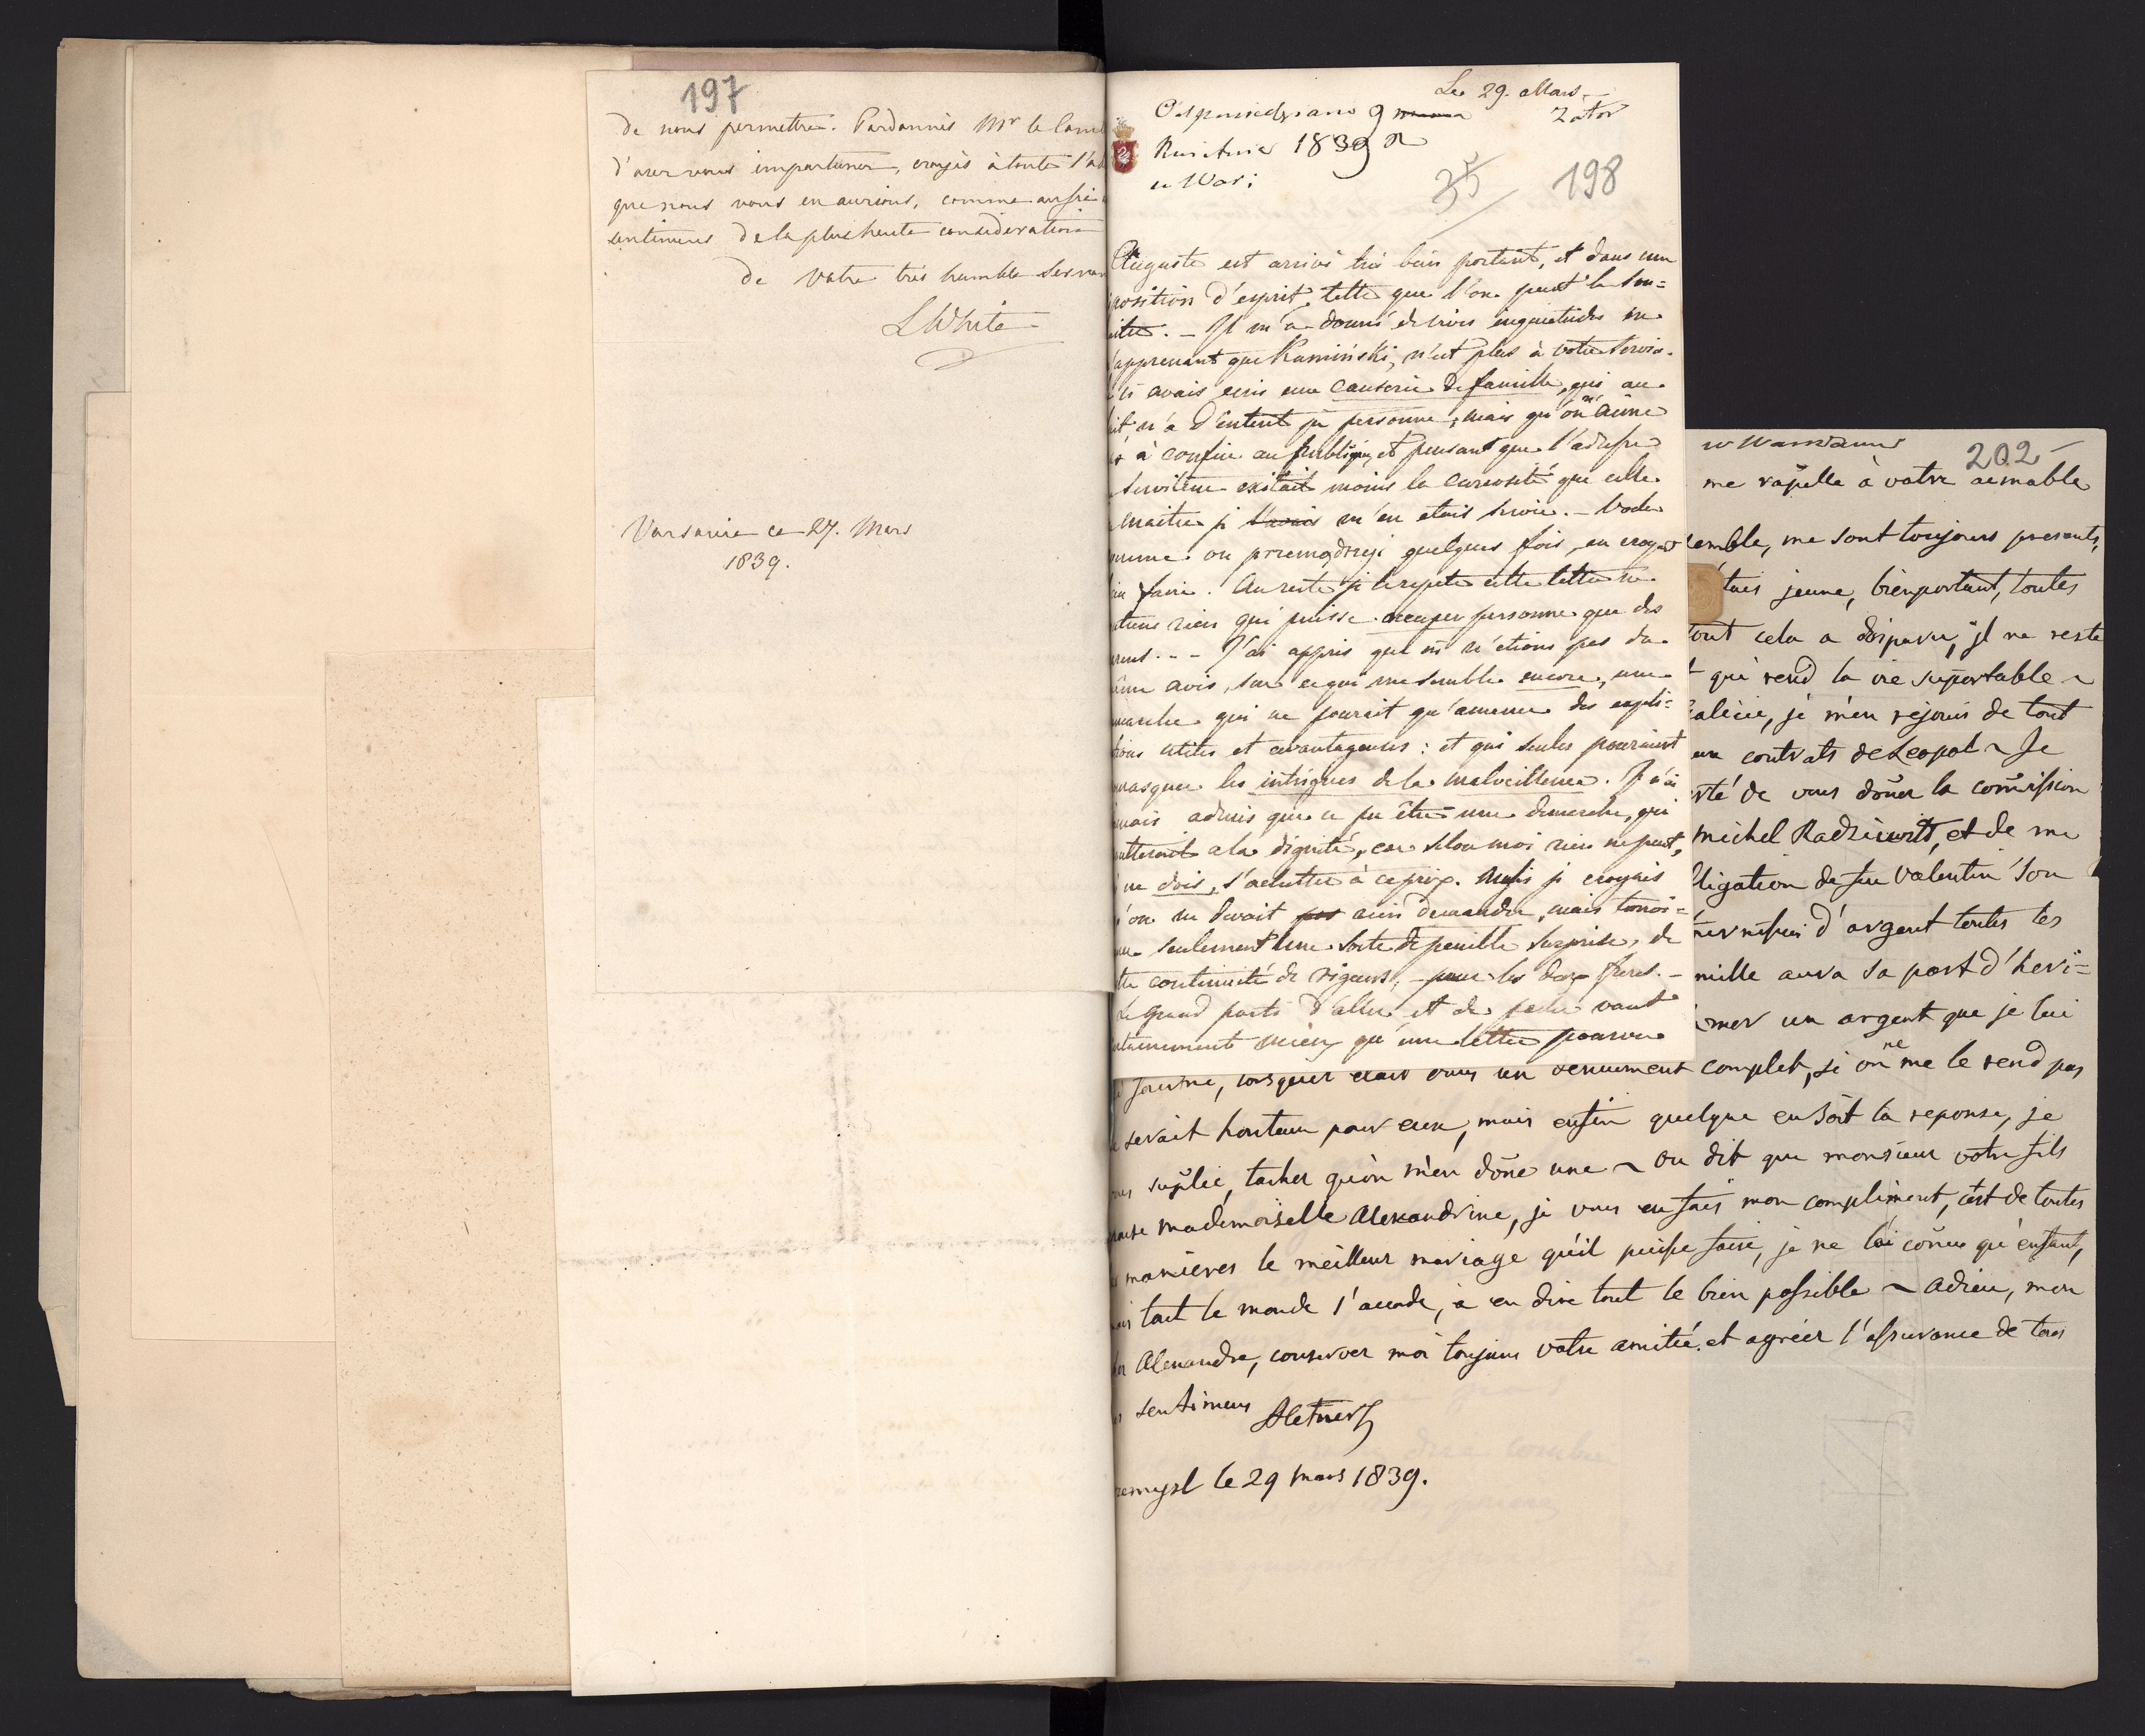 197
de nous permettre. Pardonnés Mr le Com
d'oser vous importuner, croyés à toute l'
que nous vous en aurions, comme aussi
sentimens de la plus haute consideration
de Votre très humble Serva
LWhite
Varsovie ce 27. Mars
1839.
Le 29. Mars
Zator
Odpowiedziano 9
Kwietnia 1839 R
w War:
35
198
Auguste est arrivé très bien portant, et dans une
position d'esprit, telle que l'on peut la sou=
. - Il m'a donné de vives inquietudes en
apprenant que Kamiński, n'est plus à votre service.
avais ecris une causerie de famille, qui au
n'a d'interet pr personne, mais qu'on n'aime
à confier au publique, et pensant que l'adresse
Serviteur exitait moins la curiosité que celle
maitre je m'en etais servie. -
on przemądrzeji quelques fois, en croyant
faire. Au reste je le repete cette lettre ne
rien qui puisse occuper personne que des
J'ai appris que n'étions pas du
avis, sur ce qui me semble encore, une
marche qui ne pourait qu'amener des expli=
utiles et avantageuses: et qui seules pouraient
masquer les intrigues de la malveillance. Je n'ai
mais admis que ce pu être une demarche, qui
a la dignité, car selon moi rien ne peut,
ne dois, s'acheter à ce prix. Mais je croyais
on ne devait rien demander, mais temoi=
seulement une sorte de penible surprise, de
continuité de rigueurs, - pour les deux freres. -
Le grand parti d'aller et de parler vaut
mieux qu'une lettre
w Warszawie
202
me rapelle à votre aimable
emble, me sont toujours presents,
tais jeune, bienportant, toutes
tout cela a disparu, il ne reste
qui rend la vie suportable ~
alicie, je m'en rejouis de tout
aux contrats de Leopol ~ Je
té de vous doner la comission
michel Radziwill, et de me
ligation de feu Valentin son
d'argent toutes les
mille aura sa part d'heri=
mer un argent que je lui
lorsqu'il etait dans un denuement complet, si on ne me le rend pas
serait honteux pour eux, mais enfin quelque en soit la reponse, je
suplie, tacher qu'on m'en done une ~ on dit que monsieur votre fils
mademoiselle Alexandrine, je vous en fais mon compliment, c'est de toutes
manieres le meilleur mariage qu'il puisse faire, je ne l'ai conu qu'enfant,
tout le monde s'acorde, à en dire tout le bien possible ~ adieu, mon
Alexandre, conserver moi toujours votre amitié, et agréer l'assurance de tous
sentimens
emysl le 29 mars 1839.